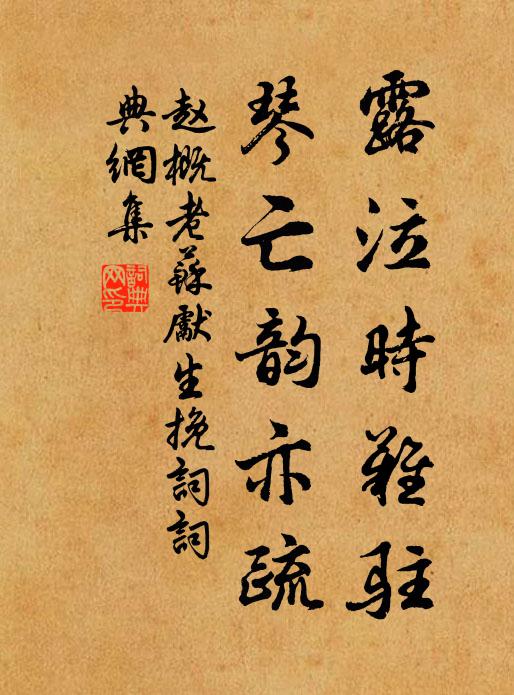 露泣時難駐
琴亡韵亦疏
赵概老蘇獻生挽詞詞
典網集
詞典
网印